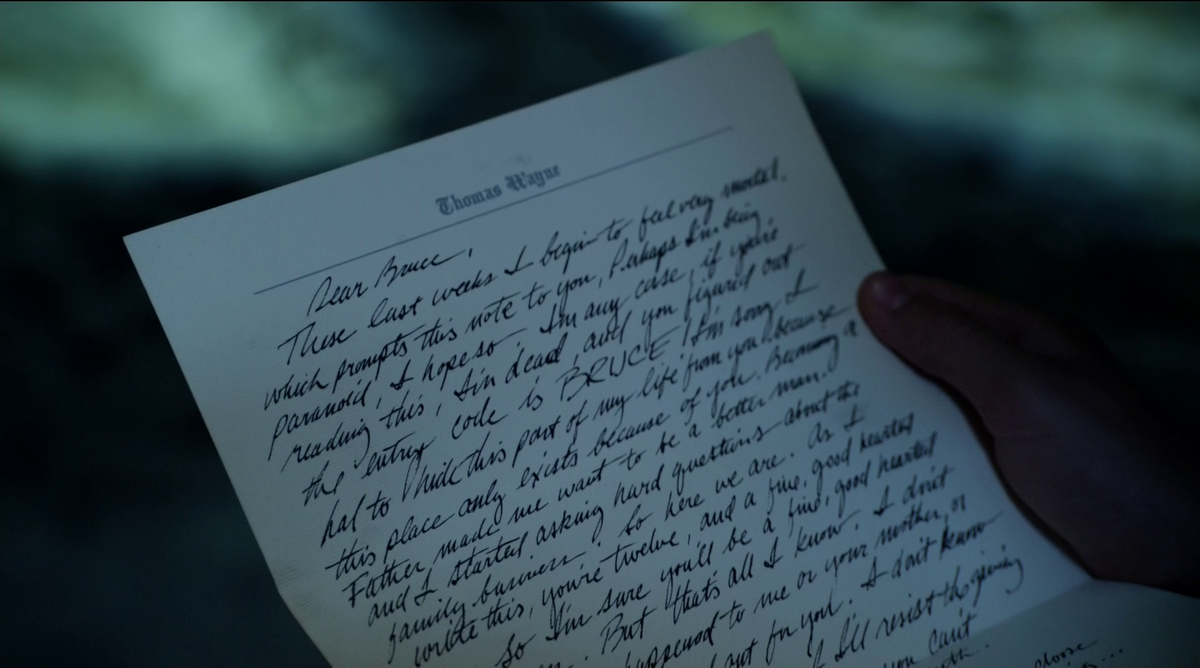 Thomas Wayne
Dear Bruce,
These last weeks I begin to feel very mortal,
which prompts this note to you. Perhaps I'm being
paranoid, I hope so. I'm any case, if you're
reading this, I'm dead, and you figured out
the entry code is BRUCE. I'm sorry I
had to hide this part of my life from you because
this place only exists because of you. Becoming a
Father made me want to be a better man.
and I started asking hard questions about the
family business. So here we are. As I
wrote this, you're twelve, and a fine, good hearted
So I'm sure you'll be a fine, good hearted
But that's all I know. I don't
happened to me or your mother, or
out for you. I don't know
I'll resist the giving
you can't
choose